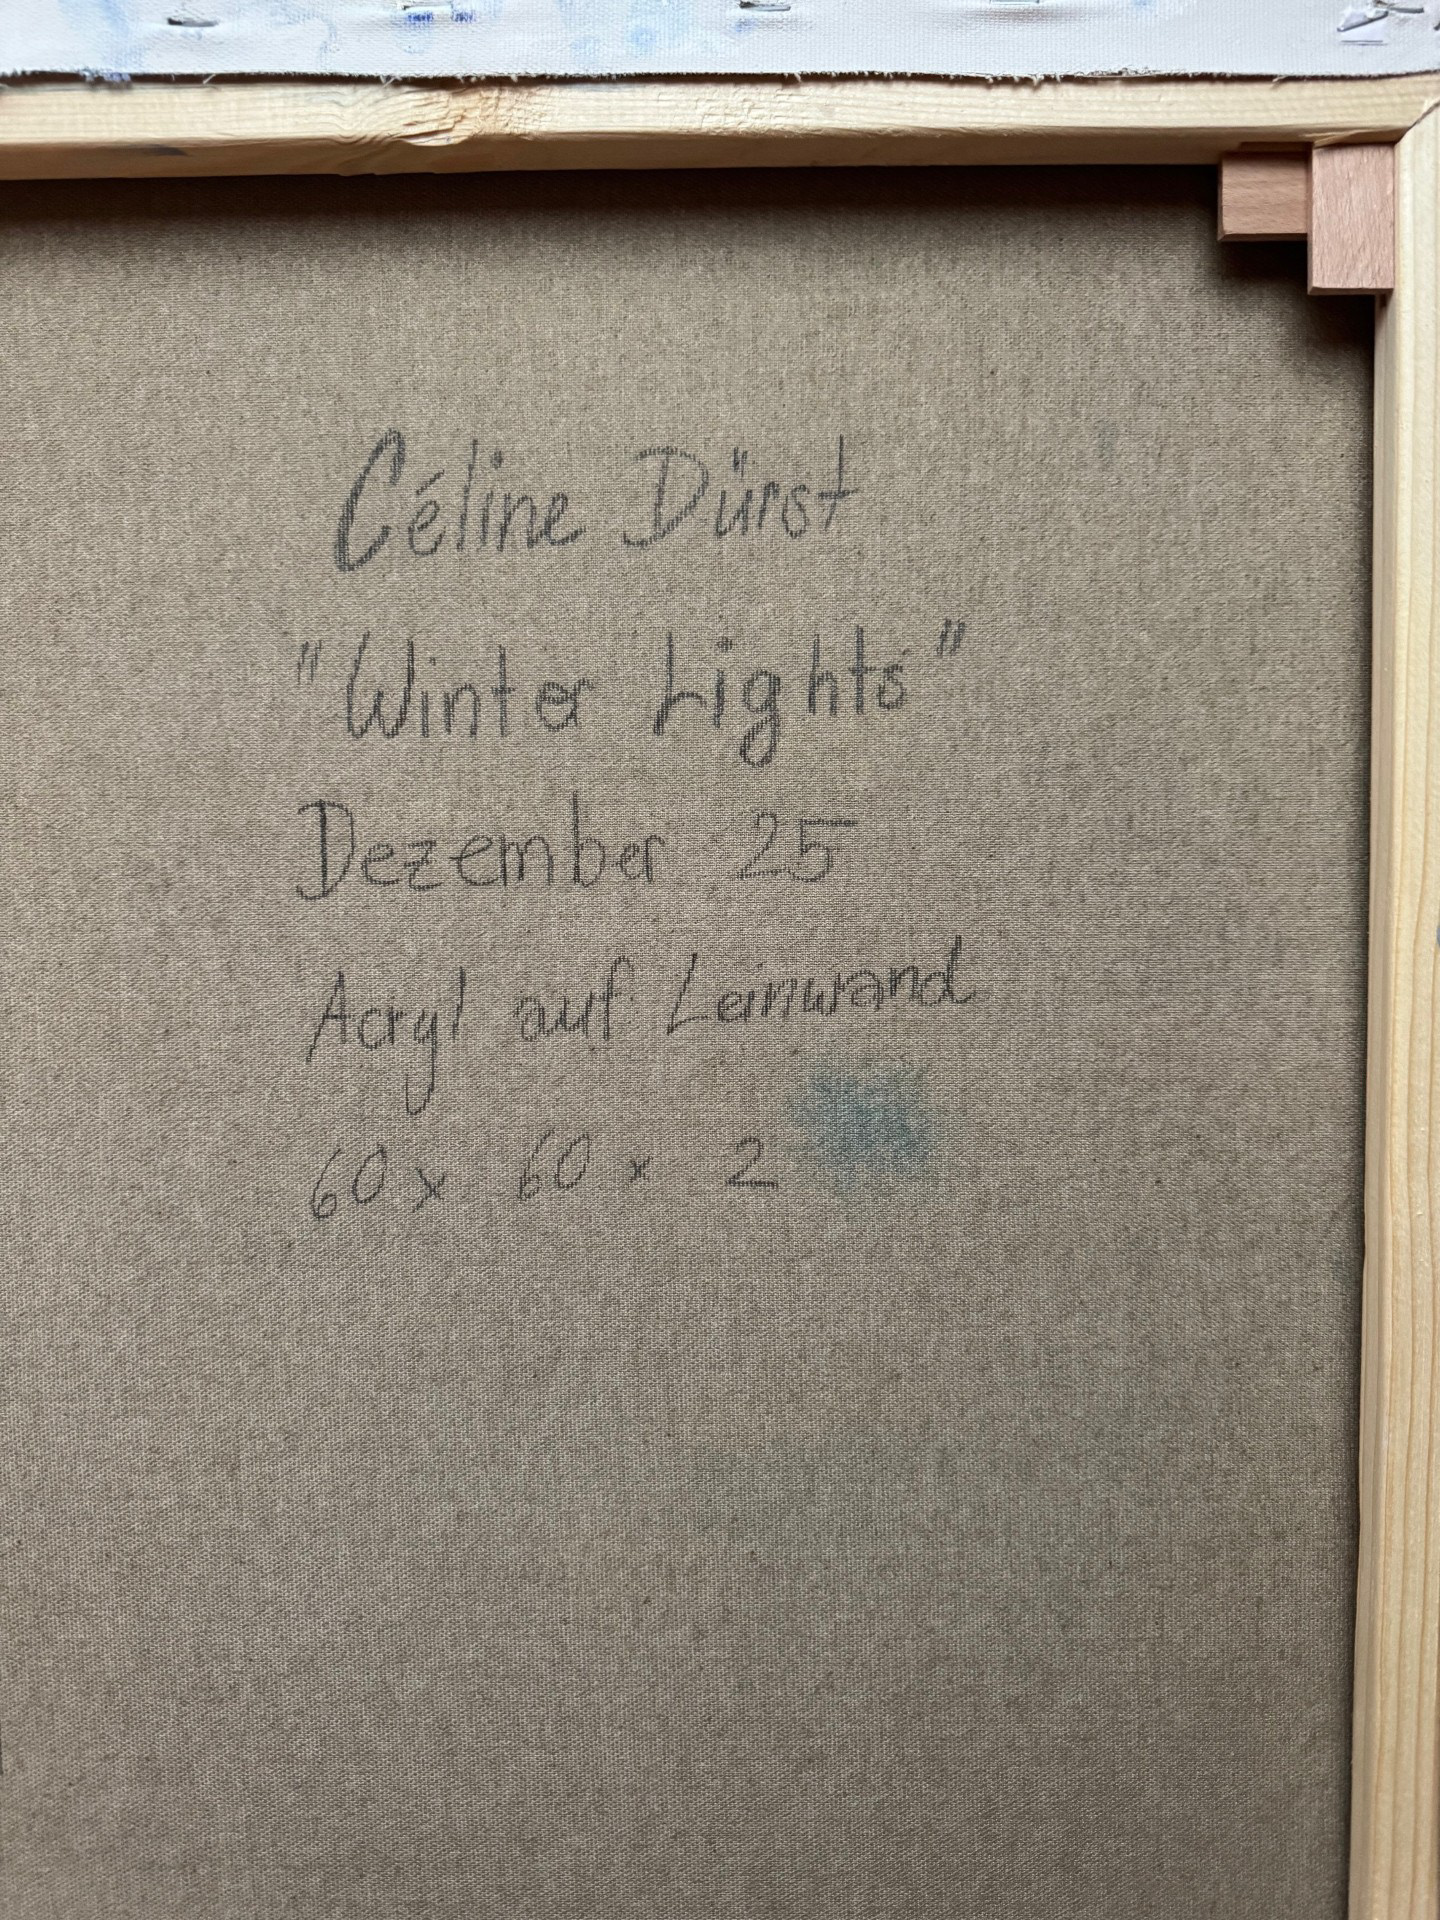 Céline Dürst
"Winter Lights"
Dezember 25
Acryl auf Leinwand
60 x 60 x 2